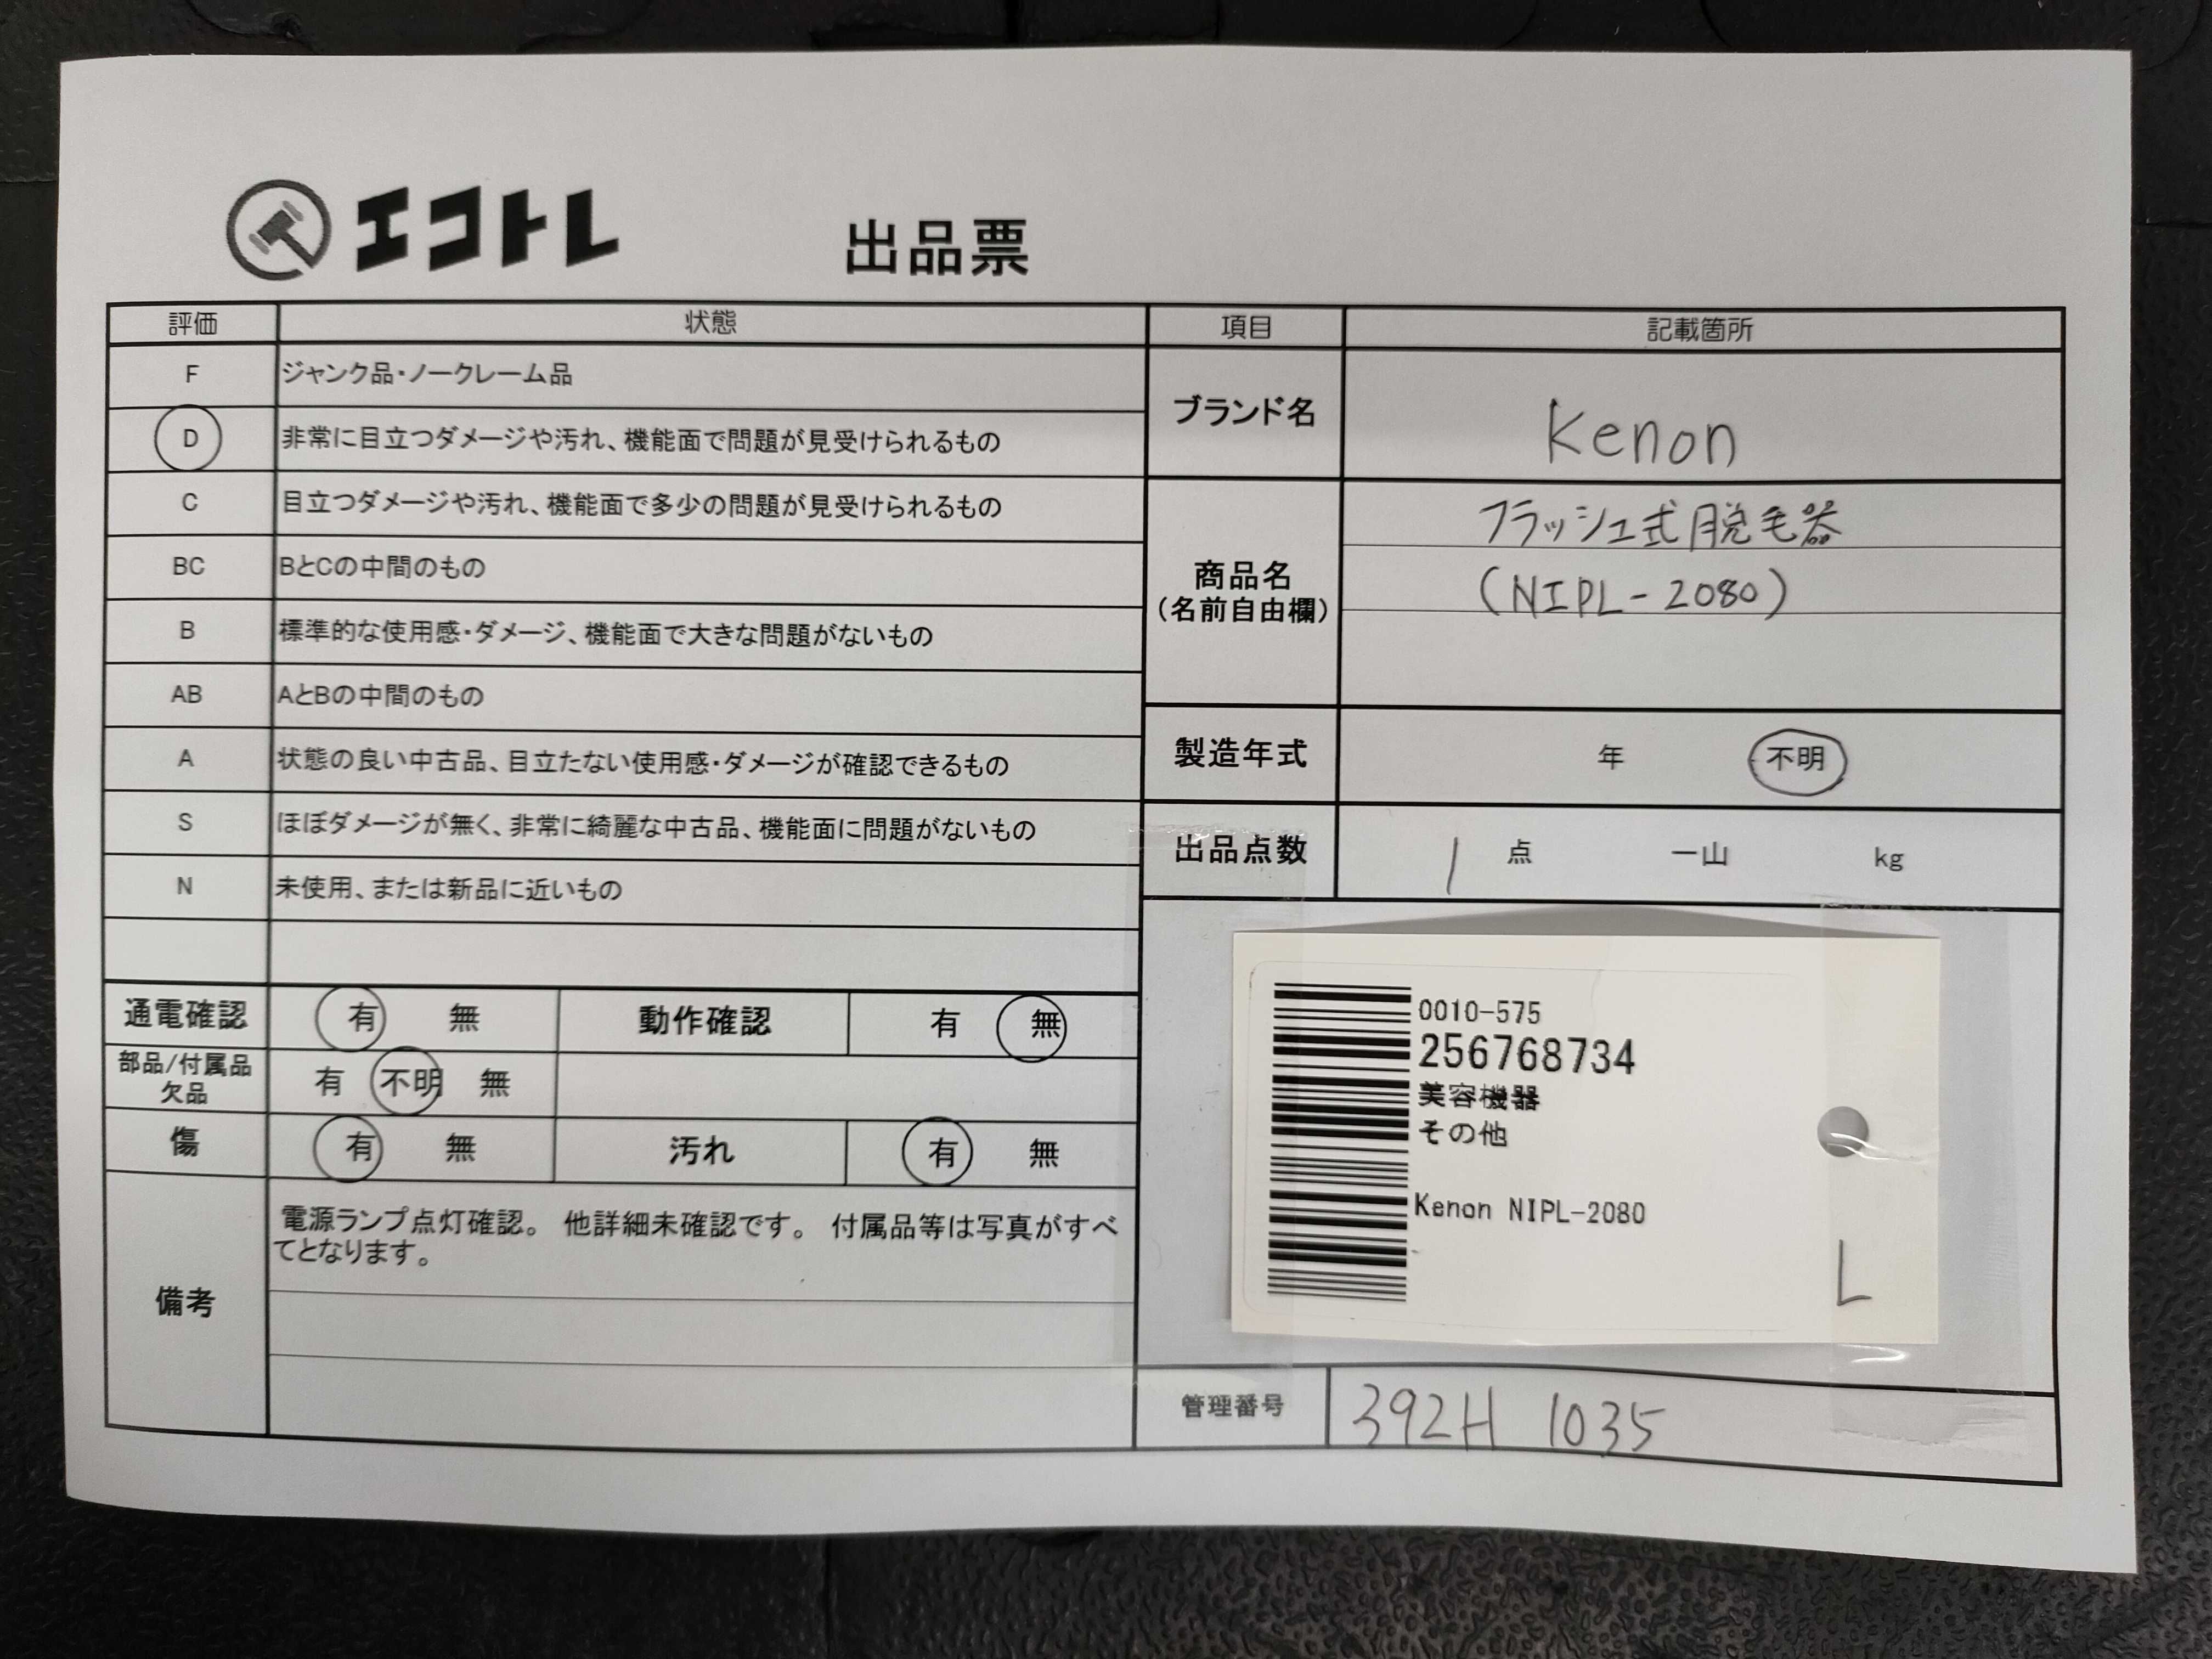 エコトレ
出品票
評価 状態
F ジャンク品・ノークレーム品
D 非常に目立つダメージや汚れ、機能面で問題が見受けられるもの
C 目立つダメージや汚れ、機能面で多少の問題が見受けられるもの
BC BとCの中間のもの
B 標準的な使用感・ダメージ、機能面で大きな問題がないもの
AB AとBの中間のもの
A 状態の良い中古品、目立たない使用感・ダメージが確認できるもの
S ほぼダメージが無く、非常に綺麗な中古品、機能面に問題がないもの
N 未使用、または新品に近いもの
通電確認 有 無 動作確認 有 無
部品/付属品
欠品
有 不明 無
傷 有 無 汚れ 有 無
備考
電源ランプ点灯確認。 他詳細未確認です。 付属品等は写真がすべ
てとなります。
項目 記載箇所
ブランド名 Kenon
商品名
(名前自由欄)
フラッシュ式脱毛器
(NIPL-2080)
製造年式 年 不明
出品点数 1 点 一山 kg
0010-575
256768734
美容機器
その他
Kenon NIPL-2080
L
管理番号 392H 1035